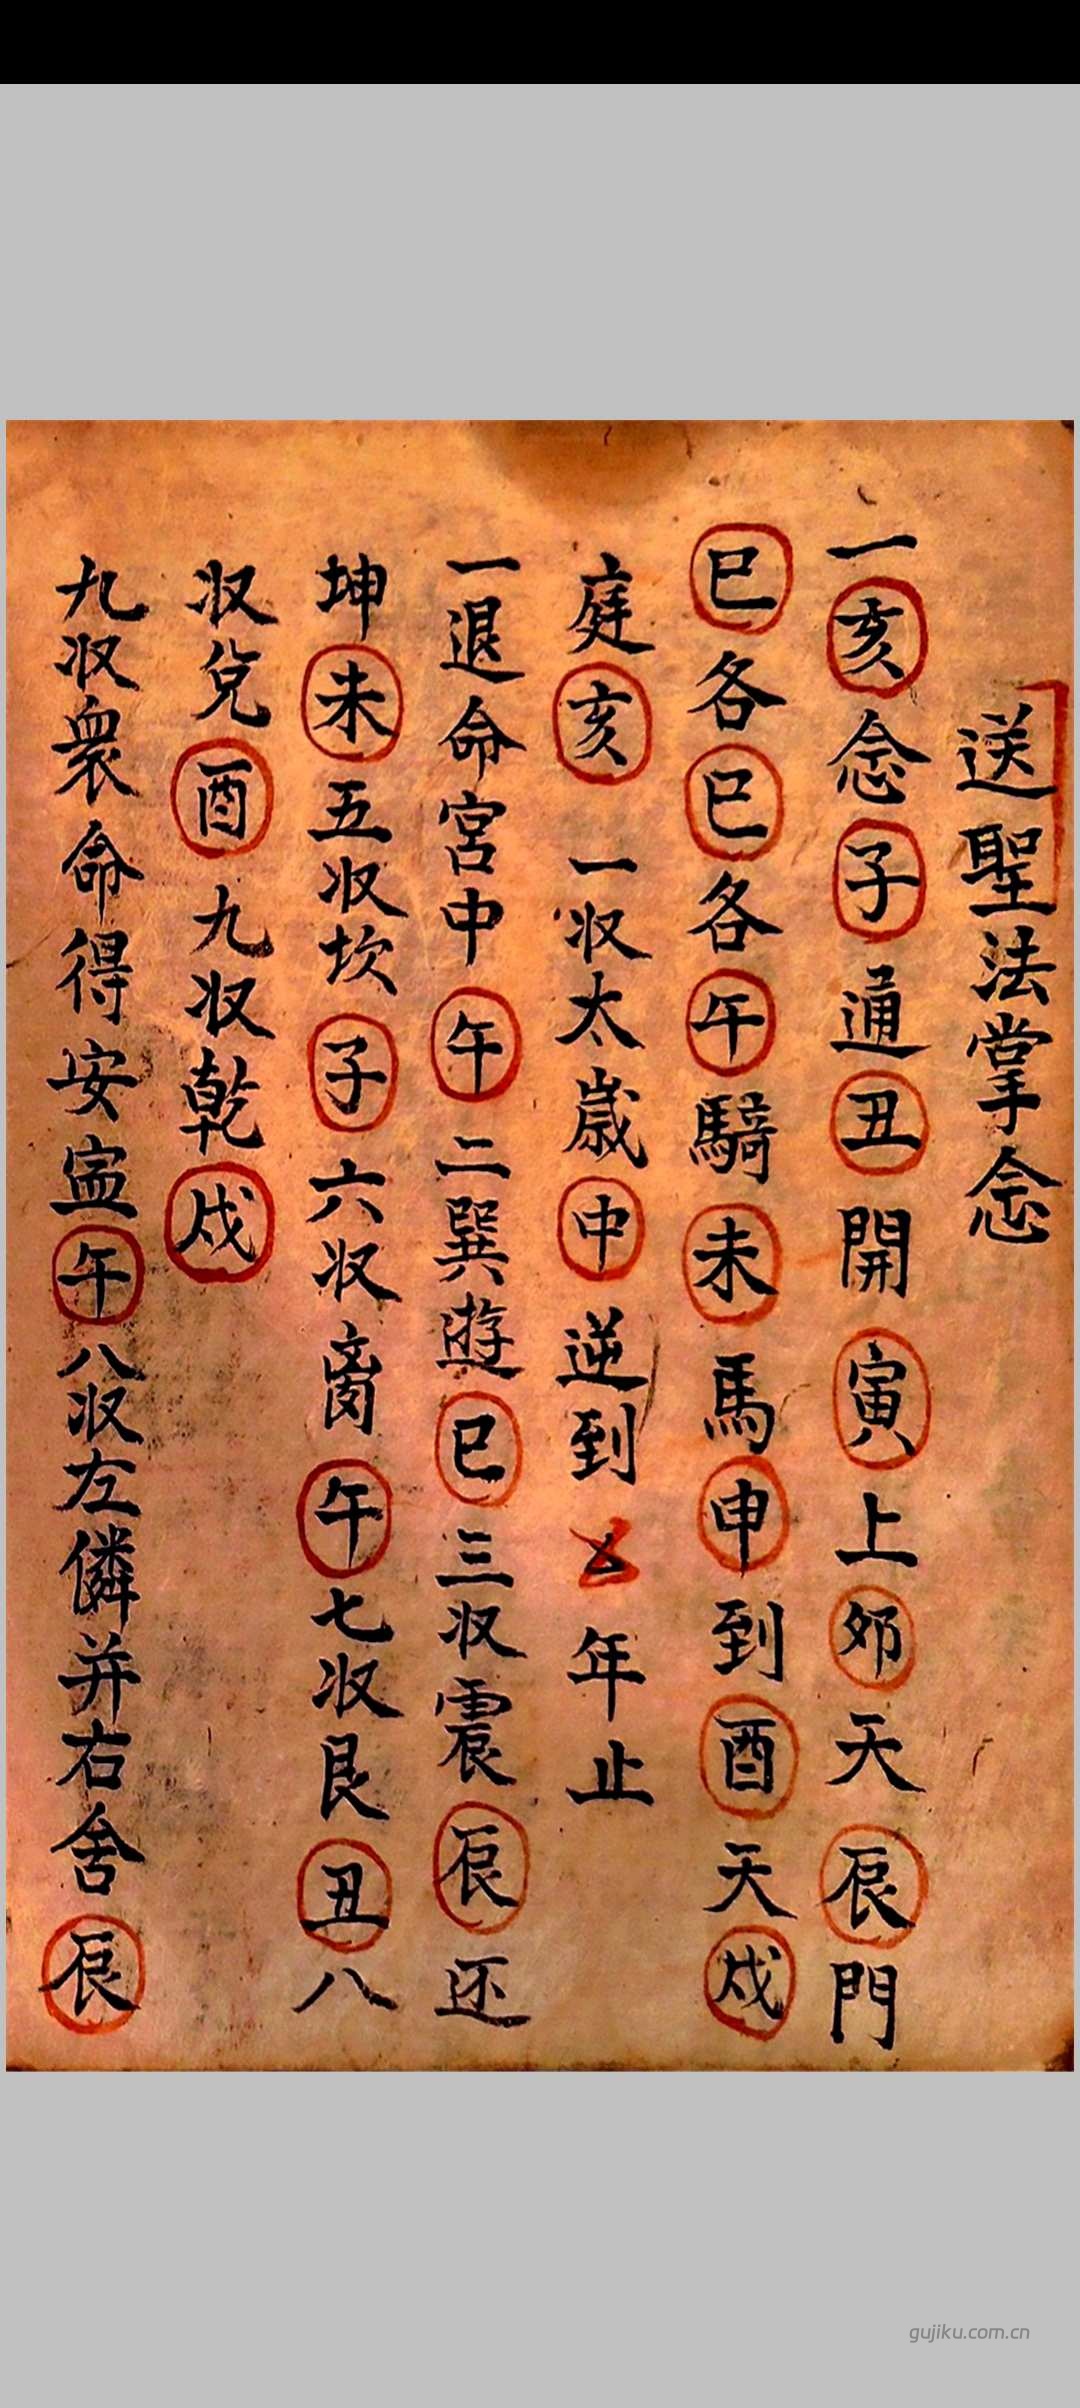 送聖法掌念
一亥念子通丑開寅上卯天辰門
巳各巳各午騎未馬申到酉天戌
庭亥一收太歲申逆到年止
一退命宮中午二巽遊巳三收震辰还
坤未五收坎子六收离午七收艮丑八
收兌酉九收乾戌
九收衆命得安寍午八收左僯并右舍辰
gujiku.com.cn